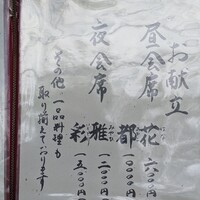 お献立
昼会席 花 六〇〇〇
都 一〇〇〇〇円
夜会席 雅 一二〇〇〇円
彩 一五〇〇〇円
その他 一品料理も
取り揃えております